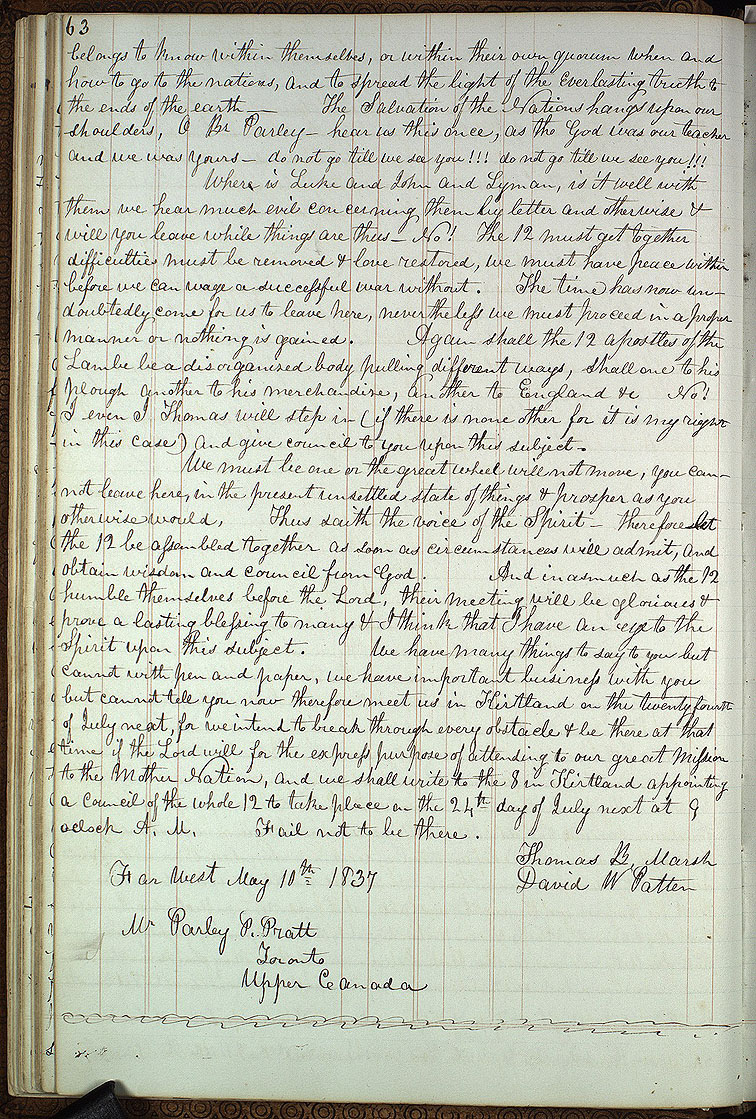 63
belongs to know within themselves, or within their own quorum when and
how to go to the nations, and to spread the light of the everlasting truth to
the ends of the earth — The Salvation of the Nations hangs upon our
shoulders, O Br Parley – hear us this once, as tho God was our teacher
and we was yours – do not go till we see you!!! do not go till we see you!!!
Where is Luke and John and Lyman, is it well with
them we hear much evil concerning them by letter and otherwise &
will you leave while things are thus – No! The 12 must get together
difficulties must be removed & love restored, we must have peace within
before we can wage a successful war without. The time has now un-
doubtedly come for us to leave here, nevertheless we must proceed in a proper
manner or nothing is gained. Again shall the 12 apostles of the
Lambe be a disorganized body pulling different ways, shall one to his
plough another to his merchandize, another to England &c No!
I even I Thomas will step in (if there is none other for it is my right
in this case) and give council to you upon this subject.
We must be one or the great wheel will not move, you can-
not leave here, in the present unsettled state of things & prosper as you
otherwise would, Thus saith the voice of the Spirit – therefore let
the 12 be assembled together as soon as circumstances will admit, and
obtain wisdom and council from God. And inasmuch as the 12
humble themselves before the Lord, their meeting will be glorious &
prove a lasting blessing to many & I think that I have an eye to the
Spirit upon this subject. We have many things to say to you but
cannot with pen and paper, we have important business with you
but cannot tell you now therefore meet us in Kirtland on the twenty fourth
of July next, for we intend to break through every obstacle & be there at that
time if the Lord will for the express purpose of attending to our great Mission
to the Mother Nation, and we shall write to the 8 in Kirtland appointing
a Council of the whole 12 to take place on the 24th day of July next at 9
oclock A. M. Fail not to be there.
Thomas B. Marsh
Far West May 10th 1837 David W Patten
Mr Parley P. Pratt
Toronto
Upper Canada